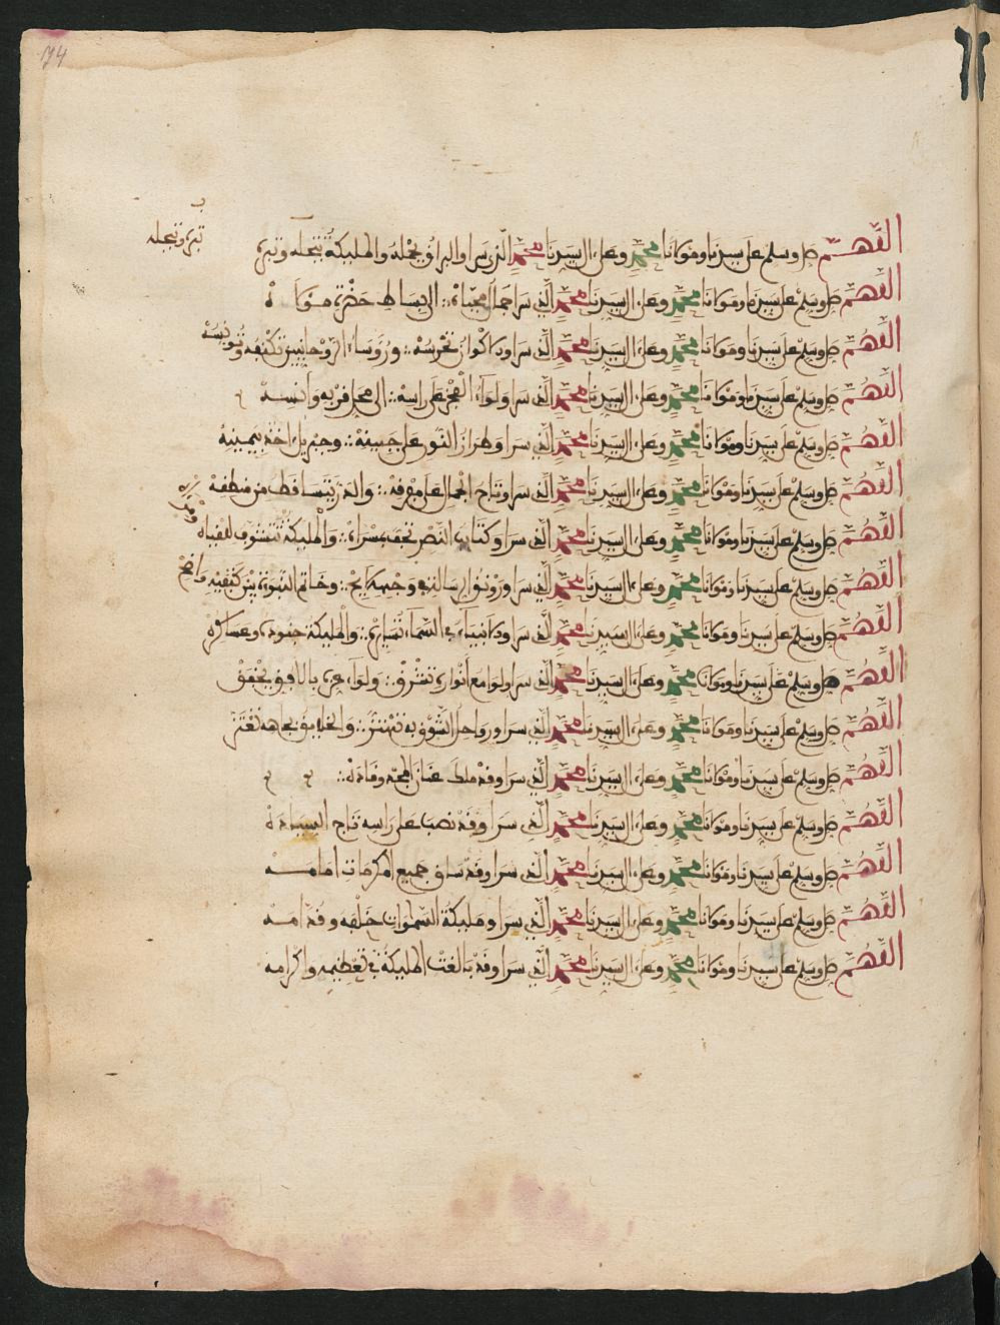 74
اللهم صل وسلم على سيدنا ومولانا محمد وعلى ال سيدنا محمد الذي سرا والبراق يحمله والمليكة تبجله وتبره
تبره وتبجله
اللهم صل وسلم على سيدنا ومولانا محمد وعلى ال سيدنا محمد الذي سرا الى بساط حضرة مولاه
اللهم صل وسلم على سيدنا ومولانا محمد وعلى ال سيدنا محمد الذي سرا والاكوان تحرسه ورؤساء الروحانيين تكنفه وتونسه
اللهم صل وسلم على سيدنا ومولانا محمد وعلى ال سيدنا محمد الذي سرا ولواء على راسه الى محل قربه وانسه
اللهم صل وسلم على سيدنا ومولانا محمد وعلى ال سيدنا محمد الذي سرا وطراز النور على جبينه وجبريل اخذ بيمينه
اللهم صل وسلم على سيدنا ومولانا محمد وعلى ال سيدنا محمد الذي سرا وتاج الجمال على مفرقه والدر يتساقط من منطقه
اللهم صل وسلم على سيدنا ومولانا محمد وعلى ال سيدنا محمد الذي سرا وكتايب النصر تحف بمسراه والمليكة تتشوف للقياه
اللهم صل وسلم على سيدنا ومولانا محمد وعلى ال سيدنا محمد الذي سرا ورونق الرسالة في وجهه وخاتم النبوة بين كتفيه
اللهم صل وسلم على سيدنا ومولانا محمد وعلى ال سيدنا محمد الذي سرا والانبياء في السماء تسايره والمليكة جنوده وعساكره
اللهم صل وسلم على سيدنا ومولانا محمد وعلى ال سيدنا محمد الذي سرا ولوامع انواره تشرق ولواء عزه بالافق يخفق
اللهم صل وسلم على سيدنا ومولانا محمد وعلى ال سيدنا محمد الذي سرا ورواحل الشوق به تهتز والخلايق بجاهه تعتز
اللهم صل وسلم على سيدنا ومولانا محمد وعلى ال سيدنا محمد الذي سرا وقد ملك عنان المجد وقاده
اللهم صل وسلم على سيدنا ومولانا محمد وعلى ال سيدنا محمد الذي سرا وقد نصب على راسه تاج السيادة
اللهم صل وسلم على سيدنا ومولانا محمد وعلى ال سيدنا محمد الذي سرا وقد ساق جميع المكرمات امامه
اللهم صل وسلم على سيدنا ومولانا محمد وعلى ال سيدنا محمد الذي سرا ومليكة السموات خلفه وقدامه
اللهم صل وسلم على سيدنا ومولانا محمد وعلى ال سيدنا محمد الذي سرا وقد بالغت المليكة في تعظيمه واكرامه